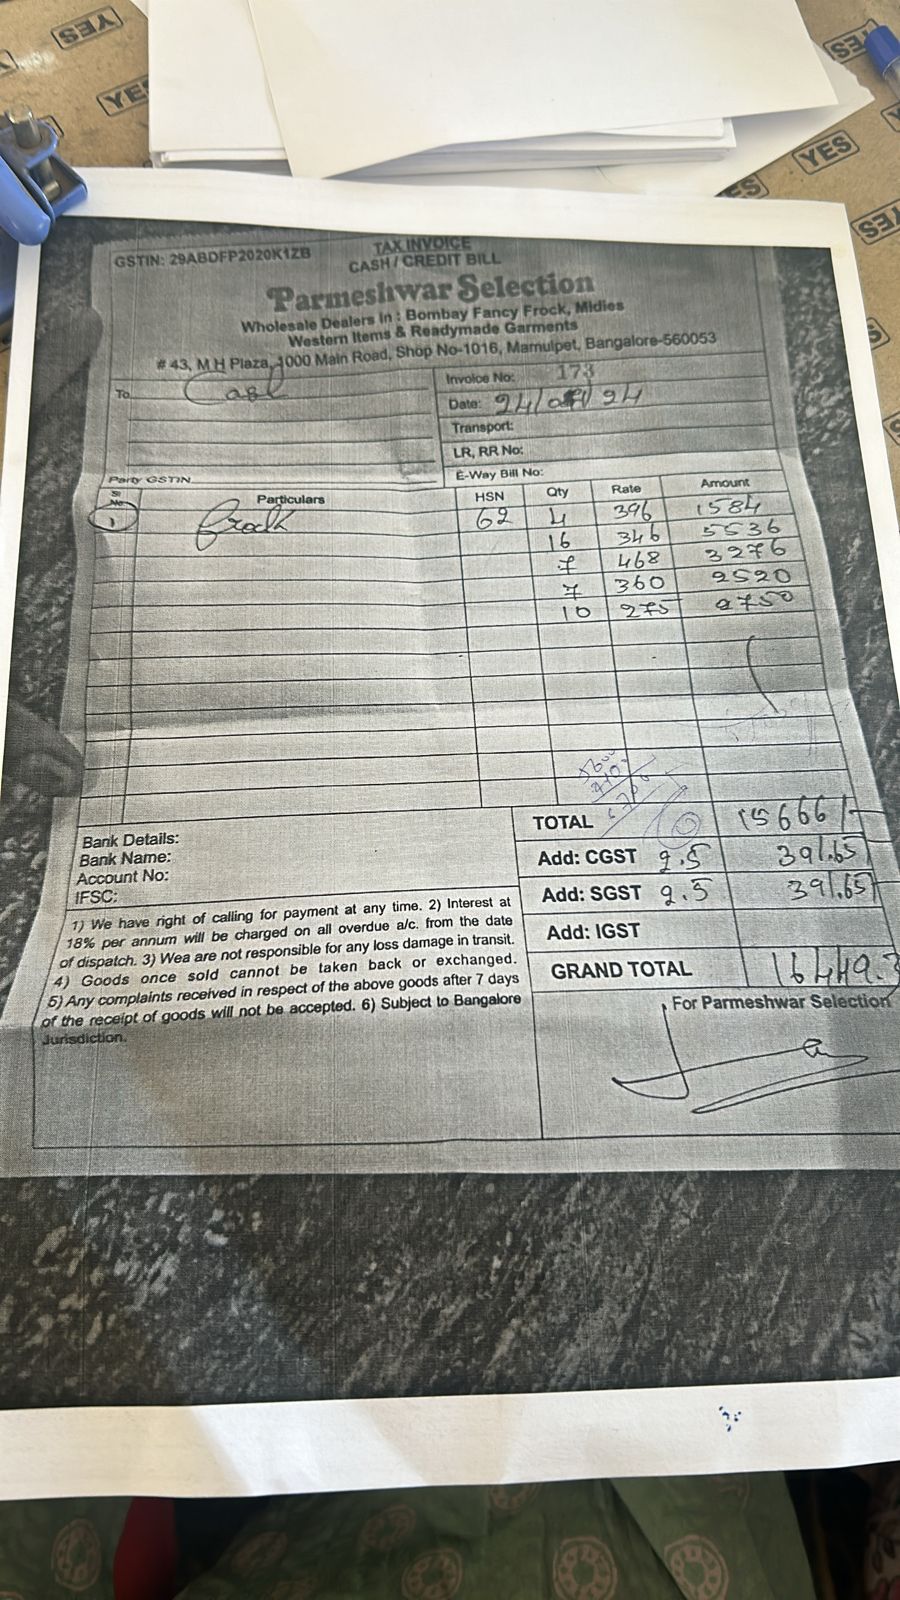 YES
YES
YES
YES
YES
GSTIN: 29ABDFP2020K1ZB
TAX INVOICE
CASH / CREDIT BILL
Parmeshwar Selection
Wholesale Dealers In : Bombay Fancy Frock, Midies
Western Items & Readymade Garments
# 43, M H Plaza, 1000 Main Road, Shop No-1016, Mamulpet, Bangalore-560053
To Cash
Invoice No: 173
Date: 24/ /24
Transport:
LR, RR No:
Party GSTIN
E-Way Bill No:
Sl No Particulars HSN Qty Rate Amount
1 Frock 62 4 396 1584
16 346 5536
7 468 3276
7 360 2520
10 275 2750
TOTAL 15666/-
Bank Details:
Bank Name:
Account No:
IFSC:
Add: CGST 2.5 391.65
Add: SGST 2.5 391.65
Add: IGST
GRAND TOTAL 16449.3
1) We have right of calling for payment at any time. 2) Interest at
18% per annum will be charged on all overdue a/c. from the date
of dispatch. 3) Wea are not responsible for any loss damage in transit.
4) Goods once sold cannot be taken back or exchanged.
5) Any complaints received in respect of the above goods after 7 days
of the receipt of goods will not be accepted. 6) Subject to Bangalore
Jurisdiction.
For Parmeshwar Selection